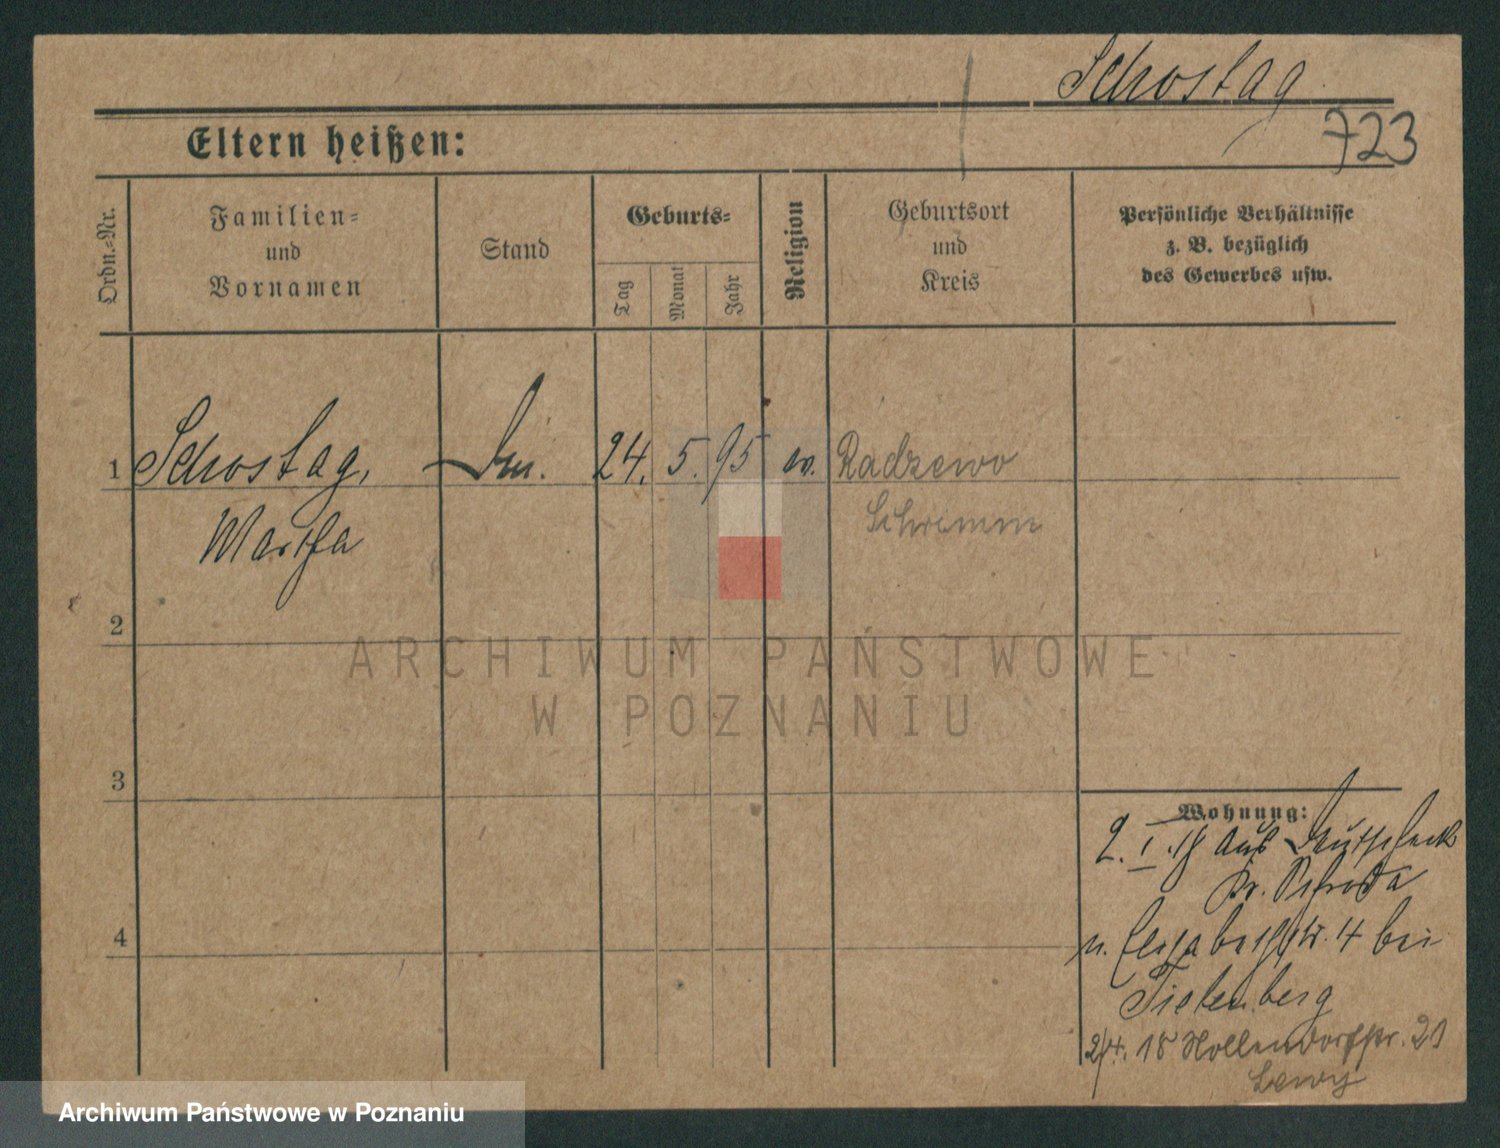 Schostag
723
Eltern heißen:
Ordn.-Nr.
Familien-
und
Vornamen
Stand
Geburts-
Tag
Monat
Jahr
Religion
Geburtsort
und
Kreis
Persönliche Verhältnisse
z. B. bezüglich
des Gewerbes usw.
1 Schostag, 24. 5. 95 ev. Radzewo
Martha Schrimm
2
3
4
ARCHIWUM PAŃSTWOWE
W POZNANIU
Wohnung:
2. I. 18 aus
Kr. Schroda
n. Elisabethstr. 4 bei
Tietenberg
2/4. 18 Hollendorfstr. 21
Lewy
Archiwum Państwowe w Poznaniu